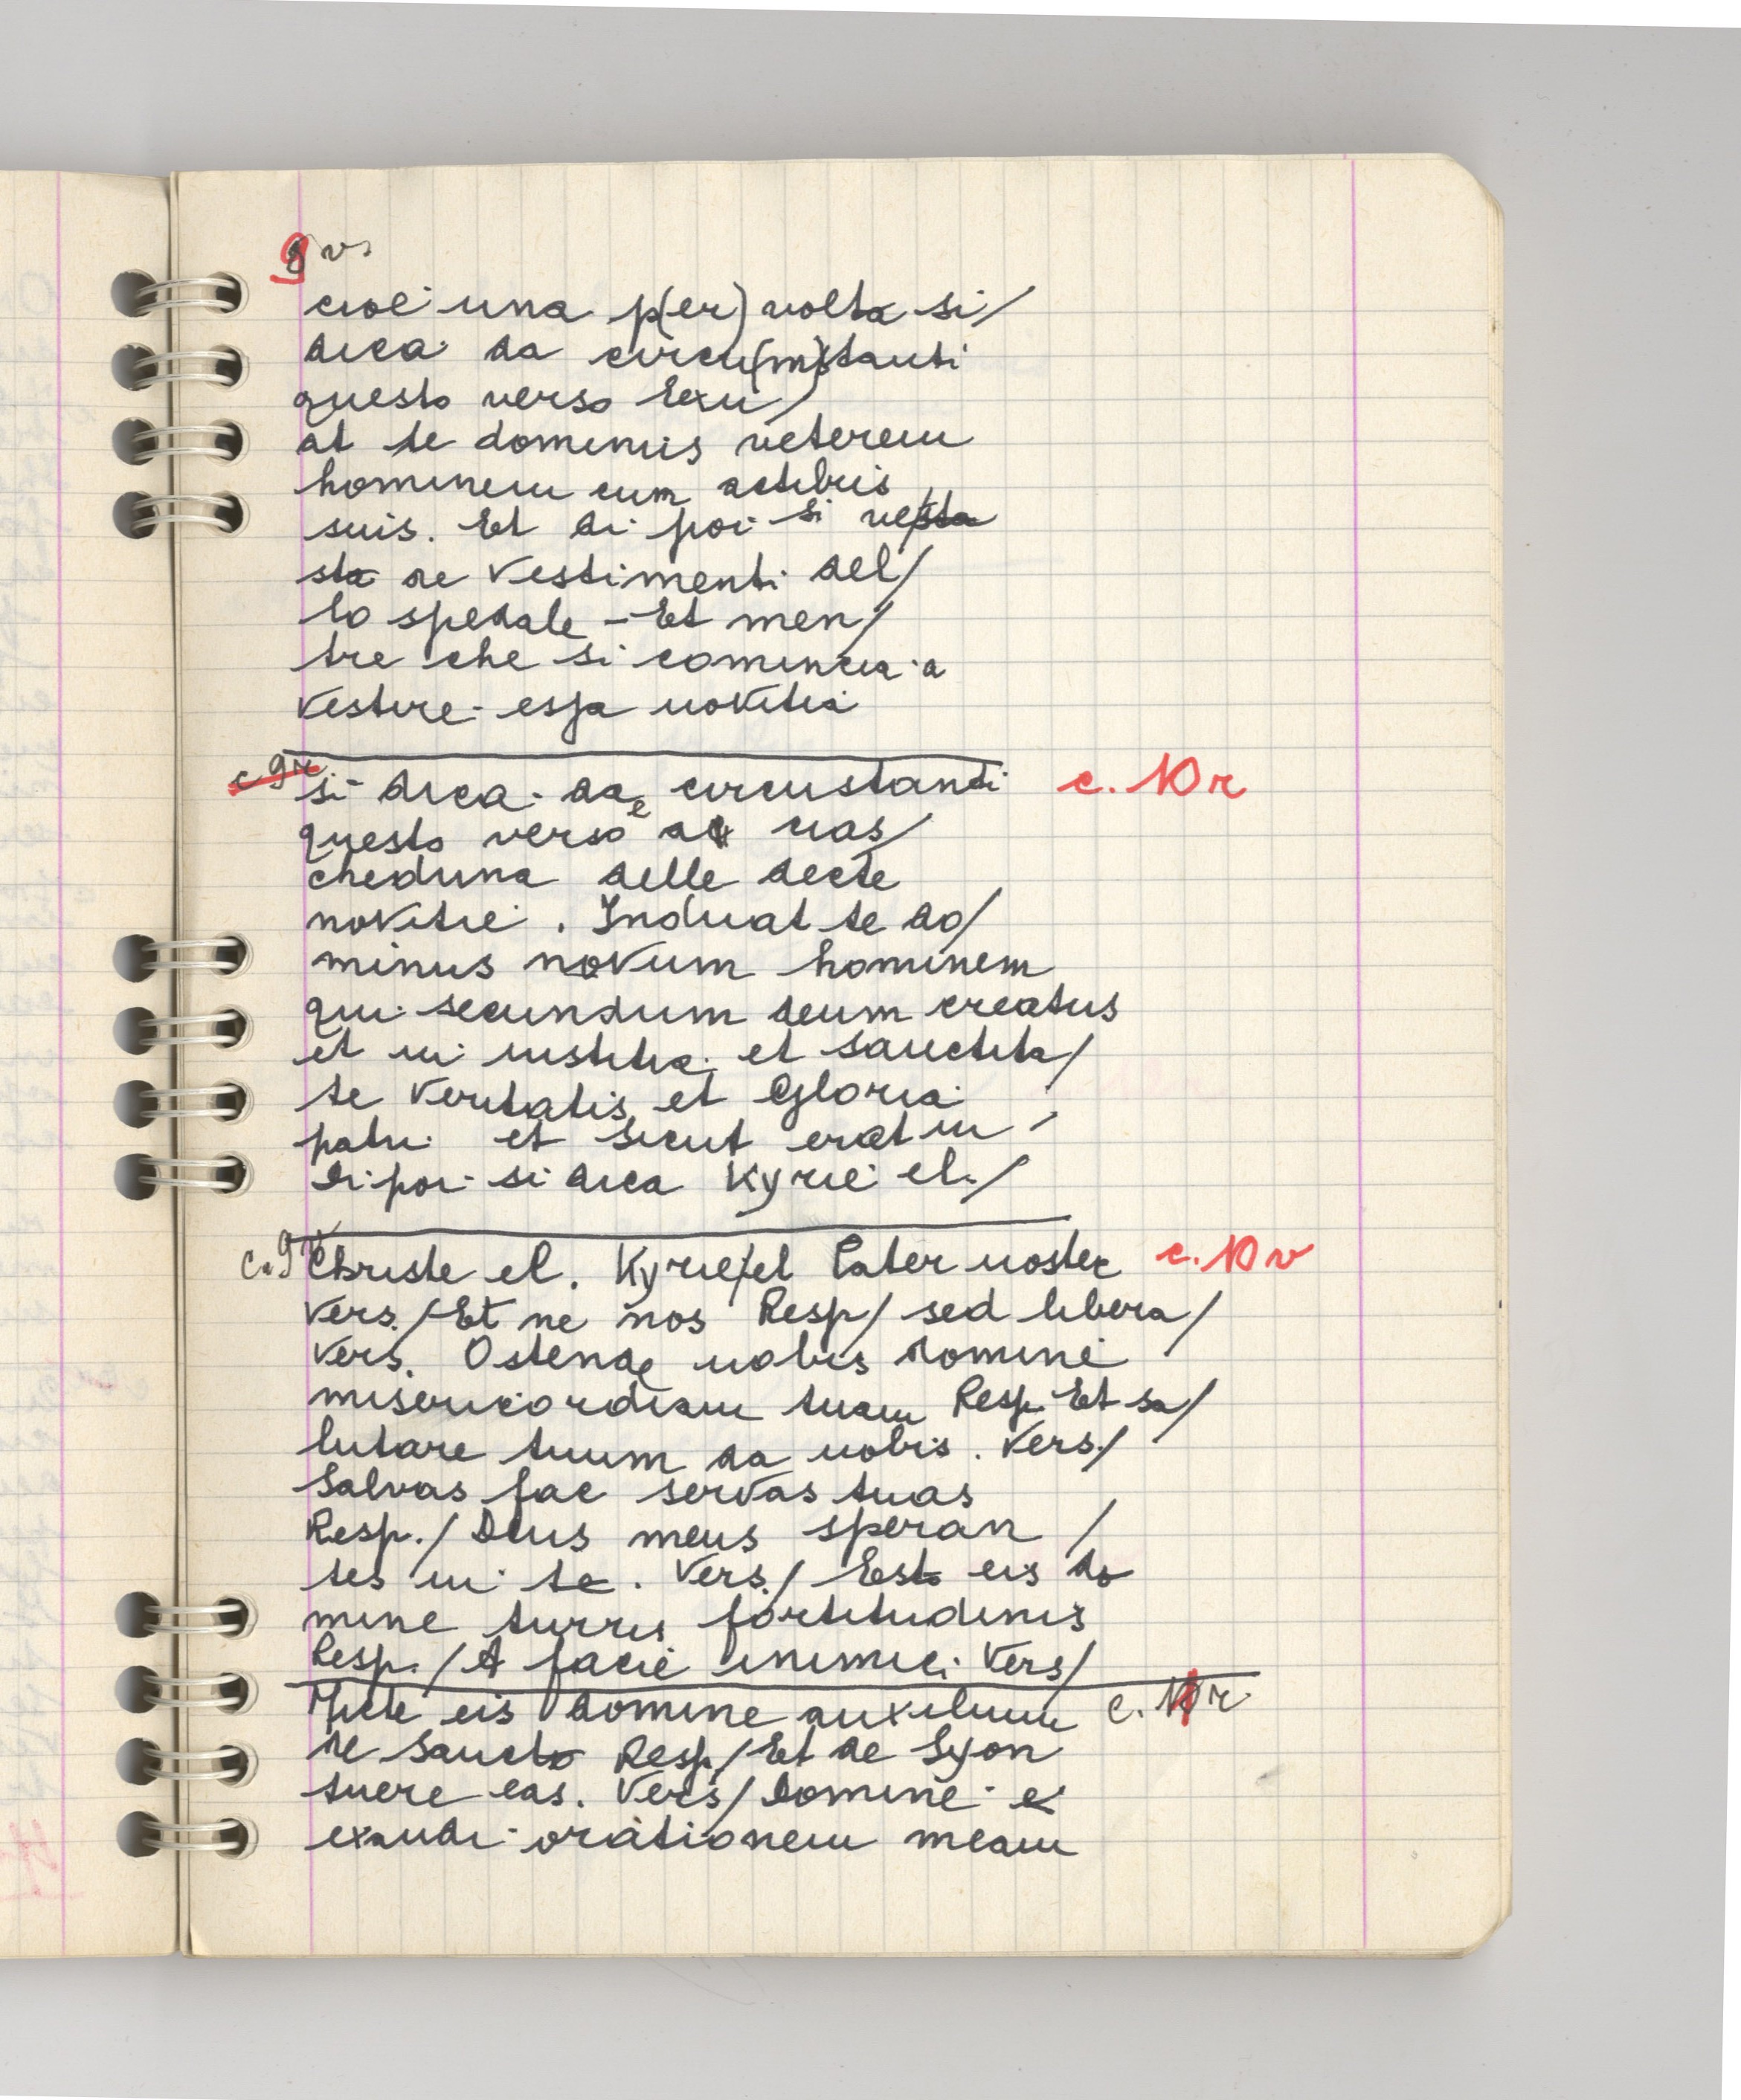 9 v.
cioè una p(er) volta si/
dica da circu(m)stanti
questo verso Exu/
at te dominus veterem
hominem cum actibus
suis. Et di poi si ve
sta de vestimenti del/
lo spedale - Et men/
tre che si comincia a
vestire essa novitia
c 9r si dica da circustanti c. 10 r
questo verso a cias/
cheduna delle decte
novitie. Induat te do/
minus novum hominem
qui secundum deum creatus
et in iustitia et sanctita/
te veritatis et Gloria
patri et sicut erat in /
di poi si dica Kyrie el./
c. 9 v Christe el. Kyrie/el Pater noster c. 10 v
Vers./Et ne nos Resp/ sed libera/
Vers. Ostende nobis domine
misericordiam tuam Resp. Et sa/
lutare tuum da nobis. Vers./
Salvas fac servas tuas
Resp./ Deus meus speran /
tes in te. Vers./ Esto eis do
mine turris fortitudinis
Resp./ A facie inimici Vers/
Micte eis domine auxilium c. 11 r
de sancto Resp/ Et de Syon
tuere eas. Vers/ Domine e
exaudi orationem meam